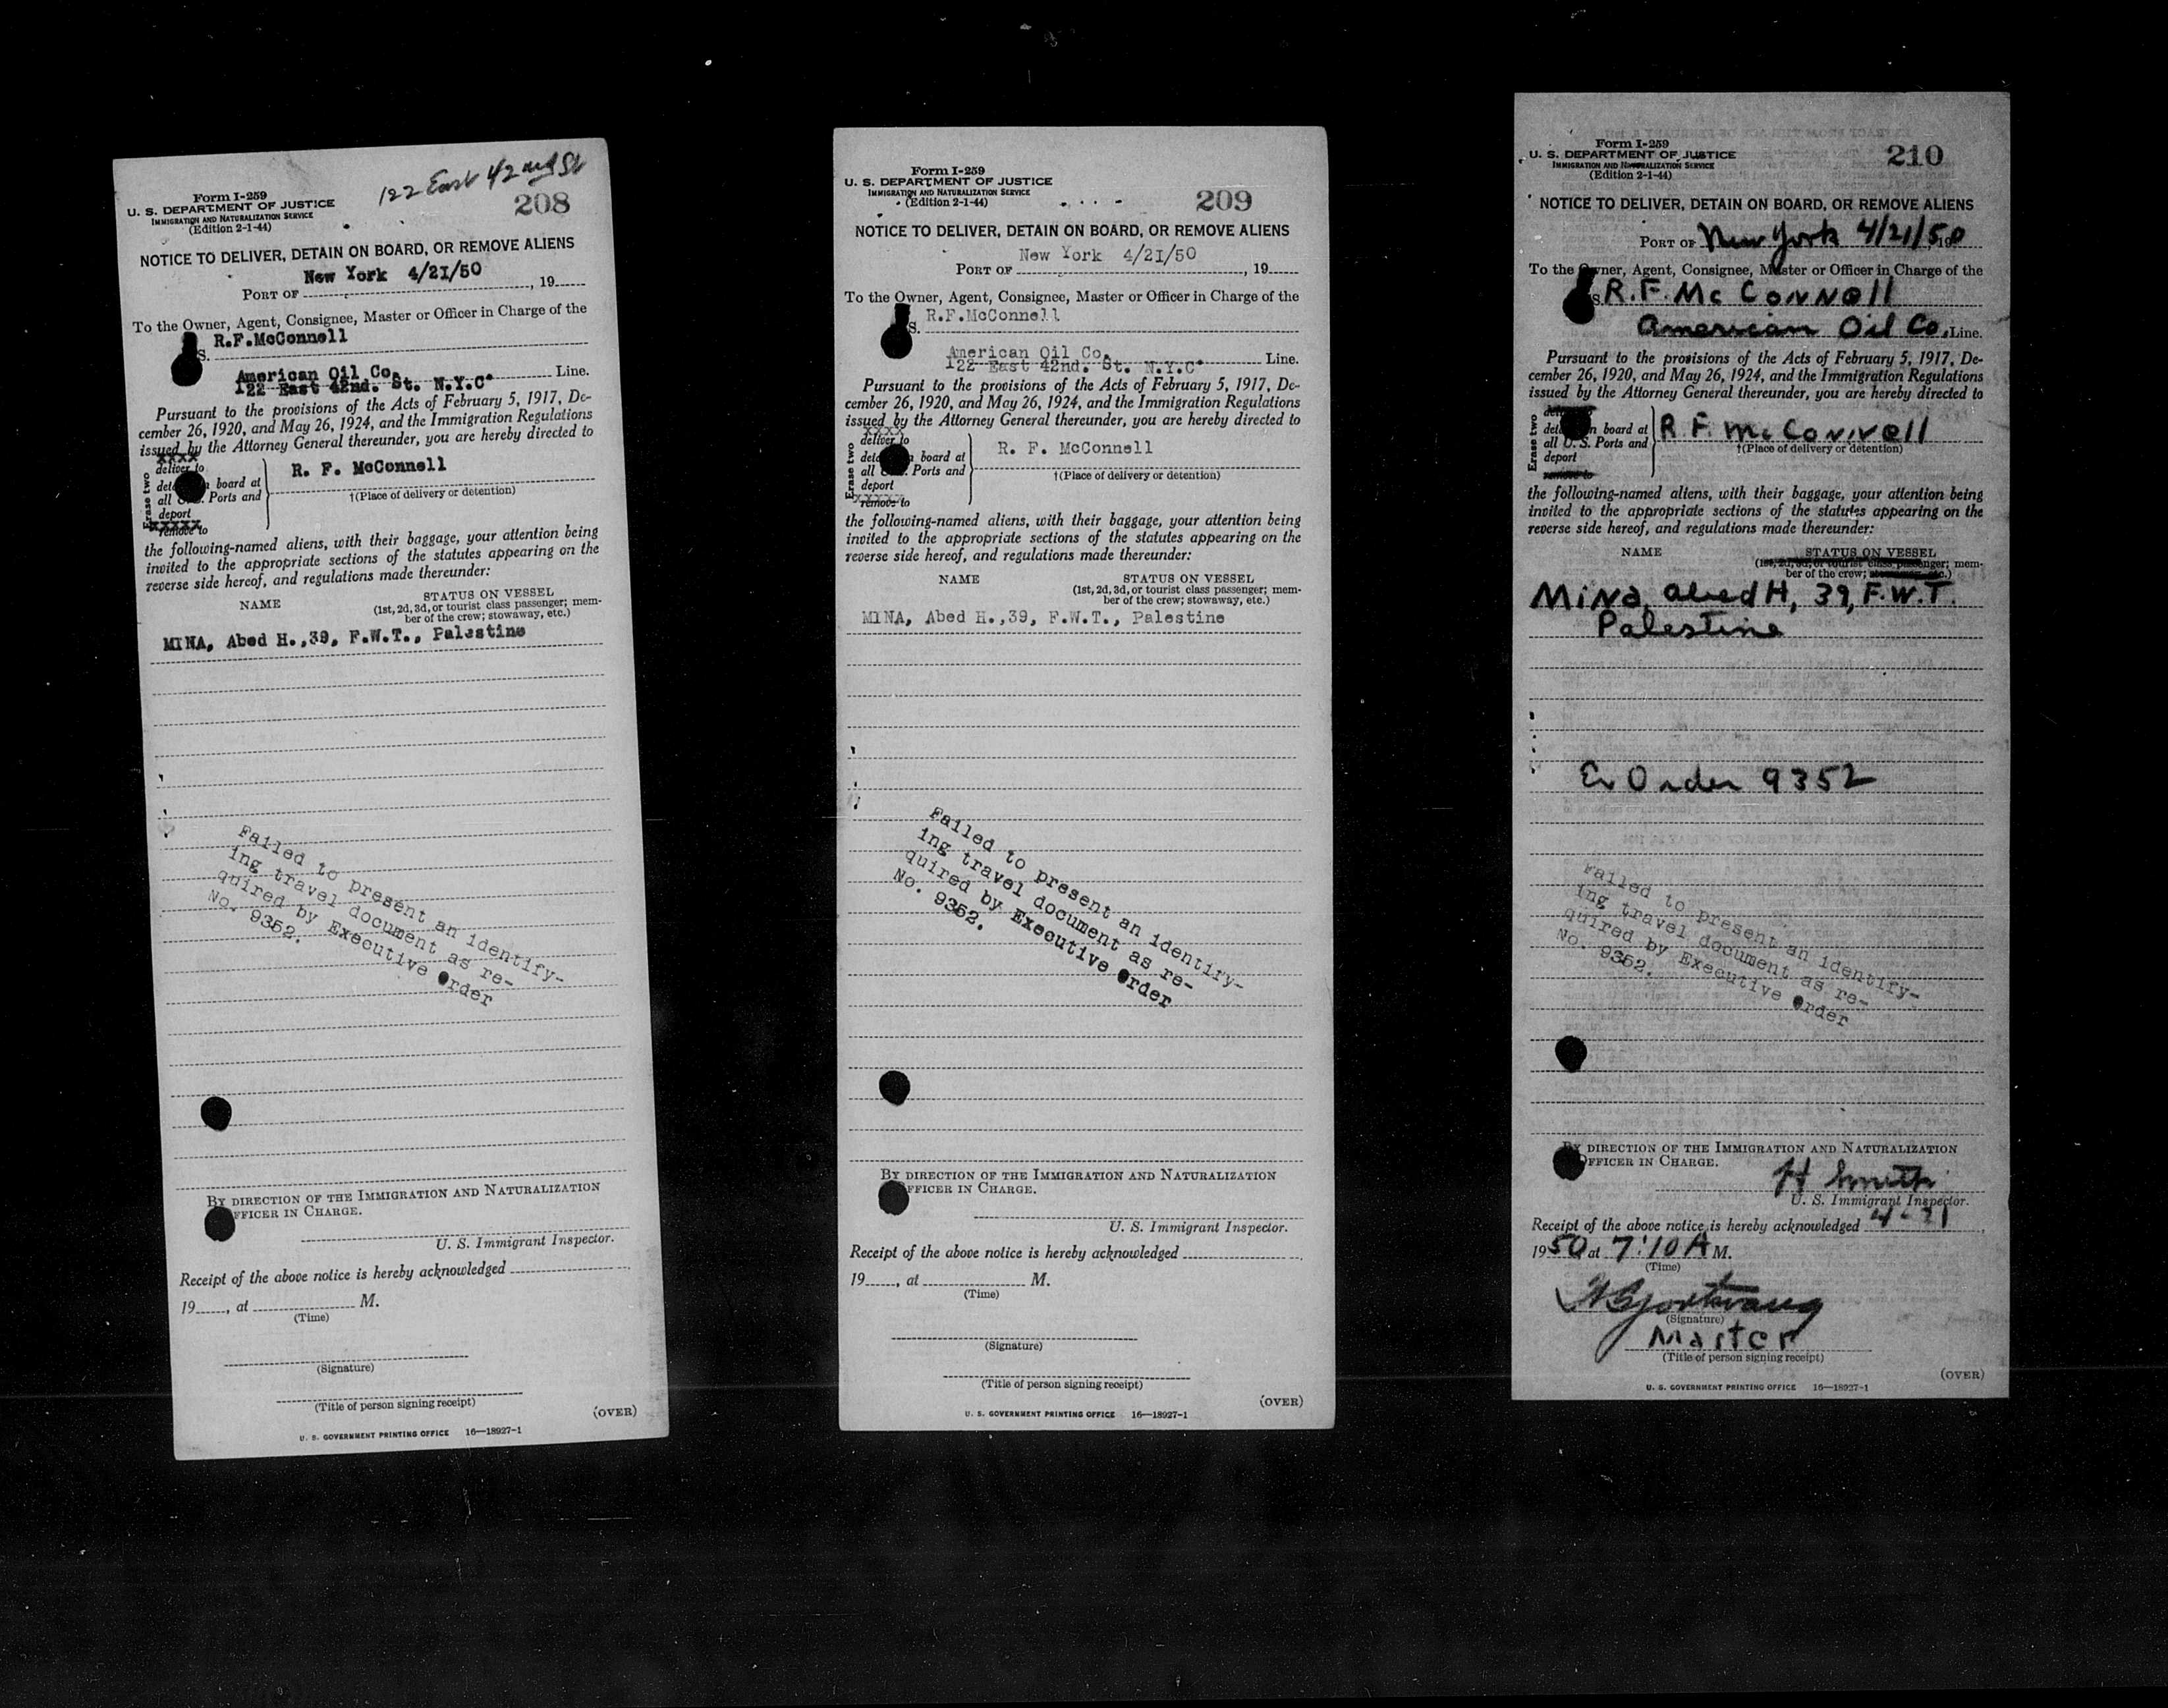 122 East 42nd St
Form I-259
U. S. DEPARTMENT OF JUSTICE
IMMIGRATION AND NATURALIZATION SERVICE
(Edition 2-1-44)
208
NOTICE TO DELIVER, DETAIN ON BOARD, OR REMOVE ALIENS
New York 4/21/50
PORT OF , 19
To the Owner, Agent, Consignee, Master or Officer in Charge of the
R.F.McConnell
S.
American Oil Co.
Line.
122 East 42nd. St. N.Y.C.
Pursuant to the provisions of the Acts of February 5, 1917, De-
cember 26, 1920, and May 26, 1924, and the Immigration Regulations
issued by the Attorney General thereunder, you are hereby directed to
Erase two
xxxx
deliver to
board at
all Ports and
deport
xxxxx
remove to
R. F. McConnell
†(Place of delivery or detention)
the following-named aliens, with their baggage, your attention being
invited to the appropriate sections of the statutes appearing on the
reverse side hereof, and regulations made thereunder:
NAME STATUS ON VESSEL
(1st, 2d, 3d, or tourist class passenger; mem-
ber of the crew; stowaway, etc.)
MINA, Abed H.,39, F.W.T., Palestine
Failed to present an identify-
ing travel document as re-
quired by Executive Order
No. 9352.
BY DIRECTION OF THE IMMIGRATION AND NATURALIZATION
OFFICER IN CHARGE.
U. S. Immigrant Inspector.
Receipt of the above notice is hereby acknowledged
19, at M.
(Time)
(Signature)
(Title of person signing receipt)
(OVER)
U. S. GOVERNMENT PRINTING OFFICE 16—18927-1
Form I-259
U. S. DEPARTMENT OF JUSTICE
IMMIGRATION AND NATURALIZATION SERVICE
(Edition 2-1-44)
209
NOTICE TO DELIVER, DETAIN ON BOARD, OR REMOVE ALIENS
New York 4/21/50
PORT OF , 19
To the Owner, Agent, Consignee, Master or Officer in Charge of the
R.F.McConnell
S.
American Oil Co.
Line.
122 East 42nd. St. N.Y.C.
Pursuant to the provisions of the Acts of February 5, 1917, De-
cember 26, 1920, and May 26, 1924, and the Immigration Regulations
issued by the Attorney General thereunder, you are hereby directed to
Erase two
xxxx
deliver to
board at
all Ports and
deport
xxxxx
remove to
R. F. McConnell
†(Place of delivery or detention)
the following-named aliens, with their baggage, your attention being
invited to the appropriate sections of the statutes appearing on the
reverse side hereof, and regulations made thereunder:
NAME STATUS ON VESSEL
(1st, 2d, 3d, or tourist class passenger; mem-
ber of the crew; stowaway, etc.)
MINA, Abed H.,39, F.W.T., Palestine
Failed to present an identify-
ing travel document as re-
quired by Executive Order
No. 9352.
BY DIRECTION OF THE IMMIGRATION AND NATURALIZATION
OFFICER IN CHARGE.
U. S. Immigrant Inspector.
Receipt of the above notice is hereby acknowledged
19, at M.
(Time)
(Signature)
(Title of person signing receipt)
(OVER)
U. S. GOVERNMENT PRINTING OFFICE 16—18927-1
Form I-259
U. S. DEPARTMENT OF JUSTICE
IMMIGRATION AND NATURALIZATION SERVICE
(Edition 2-1-44)
210
NOTICE TO DELIVER, DETAIN ON BOARD, OR REMOVE ALIENS
PORT OF New York 4/21/50, 19
To the Owner, Agent, Consignee, Master or Officer in Charge of the
S. R.F. Mc Connell
American Oil Co. Line.
Pursuant to the provisions of the Acts of February 5, 1917, De-
cember 26, 1920, and May 26, 1924, and the Immigration Regulations
issued by the Attorney General thereunder, you are hereby directed to
Erase two
on board at
all U. S. Ports and
deport
remove to
R F. Mc Connell
†(Place of delivery or detention)
the following-named aliens, with their baggage, your attention being
invited to the appropriate sections of the statutes appearing on the
reverse side hereof, and regulations made thereunder:
NAME STATUS ON VESSEL
(1st, 2d, 3d, or tourist class passenger; mem-
ber of the crew; stowaway, etc.)
MINA, abed H, 39, F.W.T.
Palestine
Ex Order 9352
Failed to present an identify-
ing travel document as re-
quired by Executive Order
No. 9352.
BY DIRECTION OF THE IMMIGRATION AND NATURALIZATION
OFFICER IN CHARGE.
H Smith
U. S. Immigrant Inspector.
Receipt of the above notice is hereby acknowledged 4-21
1950 at 7:10 A M.
(Time)
(Signature)
Master
(Title of person signing receipt)
(OVER)
U. S. GOVERNMENT PRINTING OFFICE 16—18927-1